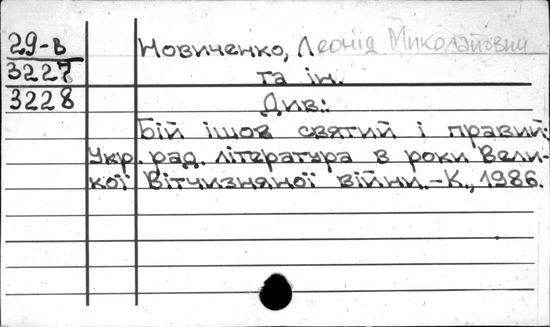 29-в Новиченко, Леонід Миколайович
3227 та ін.
3228 Див.:
Бій ішов святий і правий:
Укр. рад. література в роки Вели-
кої Вітчизняної війни.-К., 1986.